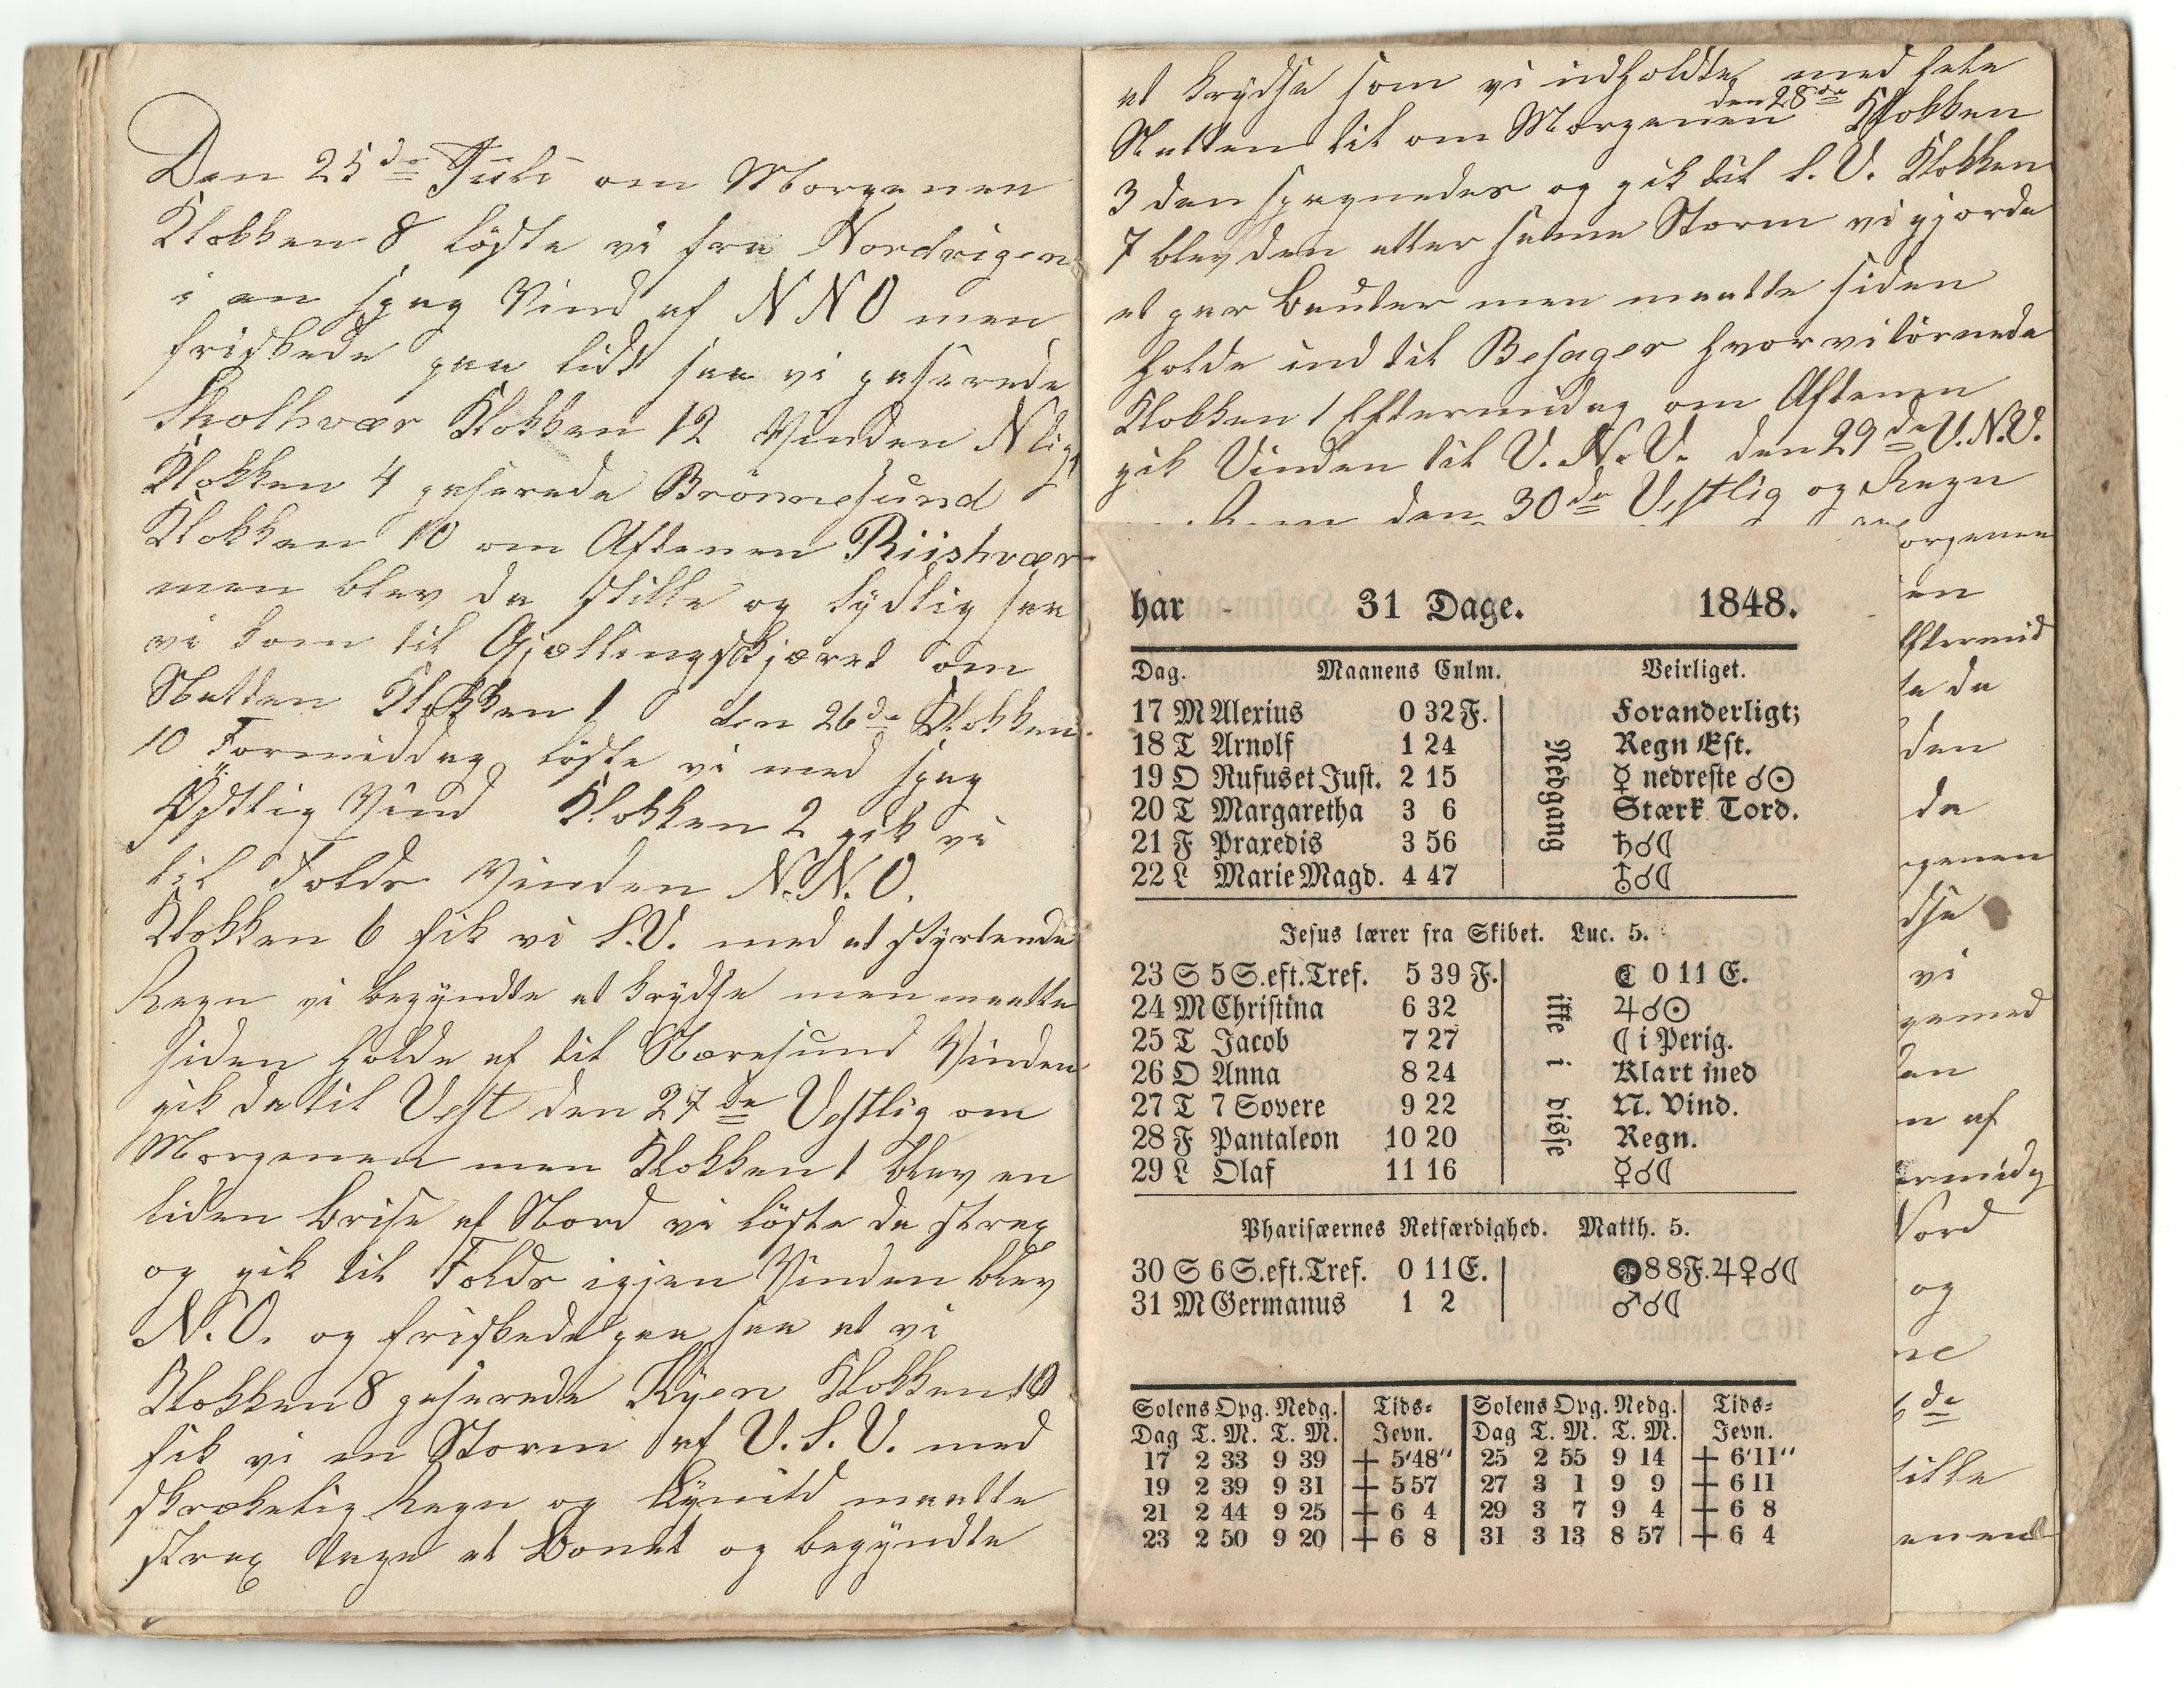 Den 25de Juli om Morgenen
Klokken 8 løste vi fra Nordvigen
i en spag Vind af NNO men
friskede paa lidt saa vi paserede
Skolhvær Klokken 12 Vinden Nlig
Klokken 4 paserede Brønnesund
Klokken 10 om Aftenen Riishvær
men blev da stille og sydlig saa
vi kom til Gjæslingskjæret om
Natten Klokken 1 den 26de Klokken
10 Formiddag løste vi med spag
Østlig Vind Klokken 2 gik vi
til Folds Vinden N.N.O.
Klokken 6 fik vi S.V. med et styrtende
Regn vi begyndte at krydse men maatte
siden holde af til Næresund Vinden
gik da til Vest den 27de Vestlig om
Morgenen men Klokken 1 blev en
liden brise af Nord vi løste da strax
og gik til Folds igjen Vinden blev
N.O. og friskede paa saa at vi
Klokken 8 paserede Kyen Klokken 10
fik vi en Storm af V.S.V. med
skrækelig Regn og maatte
strax tage at Bonet og begyndte
at krydse som vi udholdte med hele
Natten til om Morgenen den 28de Klokken
3 den spagnedes og gik til S.V. Klokken
7 blev den atter samme Storm vi gjorde
et par bauter men maatte siden
holde ind til Besager hvor vi tørnede
Klokken 1 Eftermidag om Aftenen
gik Vinden til V.N.V. den 29de V.N.V.
den 30de Vestlig og Regn
har - 31 Dage. 1848.
Dag. Maanens Culm. Veirliget.
17 M Alexius 0 32 F. Foranderligt;
18 T Arnolf 1 24 Regn Est.
19 O Rufus et Just. 2 15 ☿ nedreste ☌☉
20 T Margaretha 3 6 Stærk Tord.
21 F Praxedis 3 56 ♄☌☾
22 L Marie Magd. 4 47 ⛢☌☾
Nedgang
Jesus lærer fra Skibet. Luc. 5.
23 S 5 S. eft. Tref. 5 39 F. ☾ 0 11 E.
24 M Christina 6 32 ♃☌☉
25 T Jacob 7 27 ☾ i Perig.
26 O Anna 8 24 Klart med
27 T 7 Sovere 9 22 N. Vind.
28 F Pantaleon 10 20 Regn.
29 L Olaf 11 16 ☿☌☾
ikke i disse
Pharisæernes Retfærdighed. Matth. 5.
30 S 6 S. eft. Tref. 0 11 E. ● 8 8 F. ♃♀☌☾
31 M Germanus 1 2 ♂☌☾
Solens Opg. Nedg. Tids= Solens Opg. Nedg. Tids=
Dag T. M. T. M. Jevn. Dag T. M. T. M. Jevn.
17 2 33 9 39 + 5'48" 25 2 55 9 14 + 6'11"
19 2 39 9 31 + 5 57 27 3 1 9 9 + 6 11
21 2 44 9 25 + 6 4 29 3 7 9 4 + 6 8
23 2 50 9 20 + 6 8 31 3 13 8 57 + 6 4
orgenen
en
ftermid
te da
den
da
rgenen
dse
vi
gamed
en
n af
ermidg
Nord
og
ne
de
stille
enen